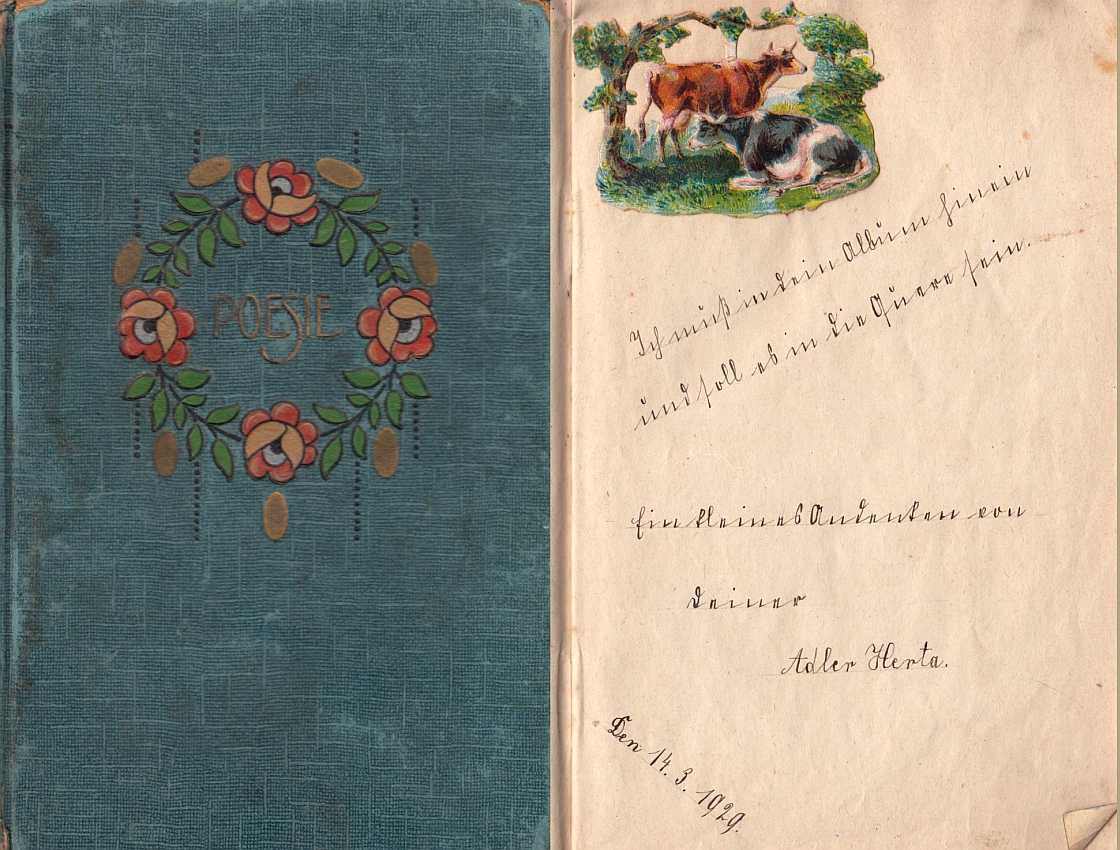 POESIE
Ich muß in dein Album hinein
und soll es in die Quere sein.
Ein kleines Andenken von
deiner
Adler Herta.
Den 14. 3. 1929.